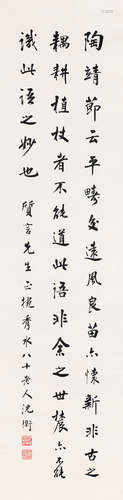 陶靖節云平疇交遠風良苗亦懷新非古之
耦耕植杖者不能道此語非余之世農亦不能
識此語之妙也
質言先生正捥 秀水八十老人沈衛